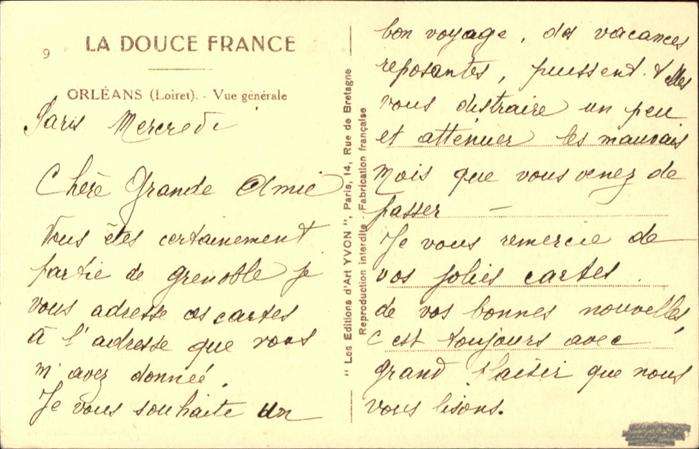 9
LA DOUCE FRANCE
ORLÉANS (Loiret). - Vue générale
Paris Mercredi
Chère Grande Amie
Vous êtes certainement
partie de Grenoble je
vous adresse ces cartes
à l'adresse que vous
m'avez donnée.
Je vous souhaite un
" Les Editions d'Art YVON ", Paris, 14, Rue de Bretagne
Reproduction interdite. Fabrication française
bon voyage, des vacances
reposantes, puissent elles
vous distraire un peu
et atténuer les mauvais
mois que vous venez de
passer —
Je vous remercie de
vos jolies cartes.
de vos bonnes nouvelles,
c'est toujours avec
grand plaisir que nous
vous lisons.